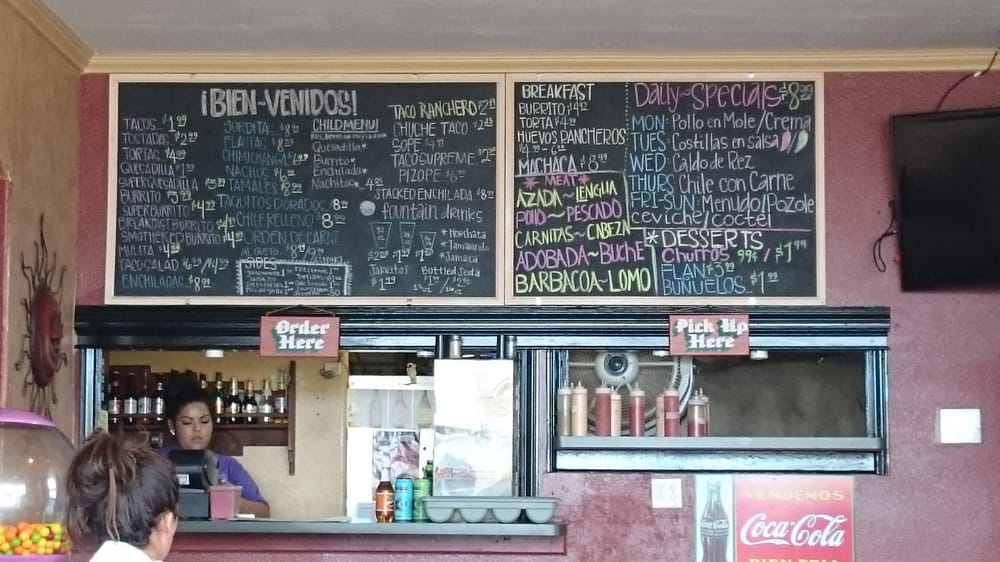 ¡BIEN-VENIDOS!
TACOS... $1.99
TOSTADAS.. $2.99
TORTAS $4.99
QUESADILLA $1.99
SUPER QUESADILLA
BURRITO $3.99
SUPER BURRITO $4
BREAKFAST BURRITO $4
SMOTHERED BURRITO $4
MULITA $4
TACO SALAD
ENCHILADAS $8.99
GORDITA
FLAUTAS
CHIMICHANGA
NACHOS
TAMALES
TAQUITOS DORADOS $8.99
CHILE RELLENO $8.99
ORDEN DE CARNE
SIDES
CHILD MENU!
Quesadilla*
Burrito*
Enchilada*
Nachitos* 4.99
TACO RANCHERO $2.99
CHUCHE TACO $2
SOPE $4
TACO SUPREME $2
PIZOPE $6
STACKED ENCHILADA $8.99
fountain drinks
* Horchata
* Tamarindo
* Jamaica
Jarritos
$1.99
Bottled Soda
BREAKFAST
BURRITO $4
TORTA $4.99
HUEVOS RANCHEROS
MACHACA $8.99
* MEAT *
AZADA~LENGUA
POLLO~PESCADO
CARNITAS~CABEZA
ADOBADA~BUCHE
BARBACOA~LOMO
Daily~Specials $8.99
MON: Pollo en Mole/Crema
TUES: Costillas en salsa
WED: Caldo de Rez
THURS: Chile con Carne
FRI-SUN: Menudo/Pozole
ceviche/coctel
*DESSERTS
Churros 99¢/$1.99
FLAN $3.99
BUÑUELOS $1.99
Order
Here
Pick Up
Here
VENDEMOS
Coca-Cola
BIEN FRIA